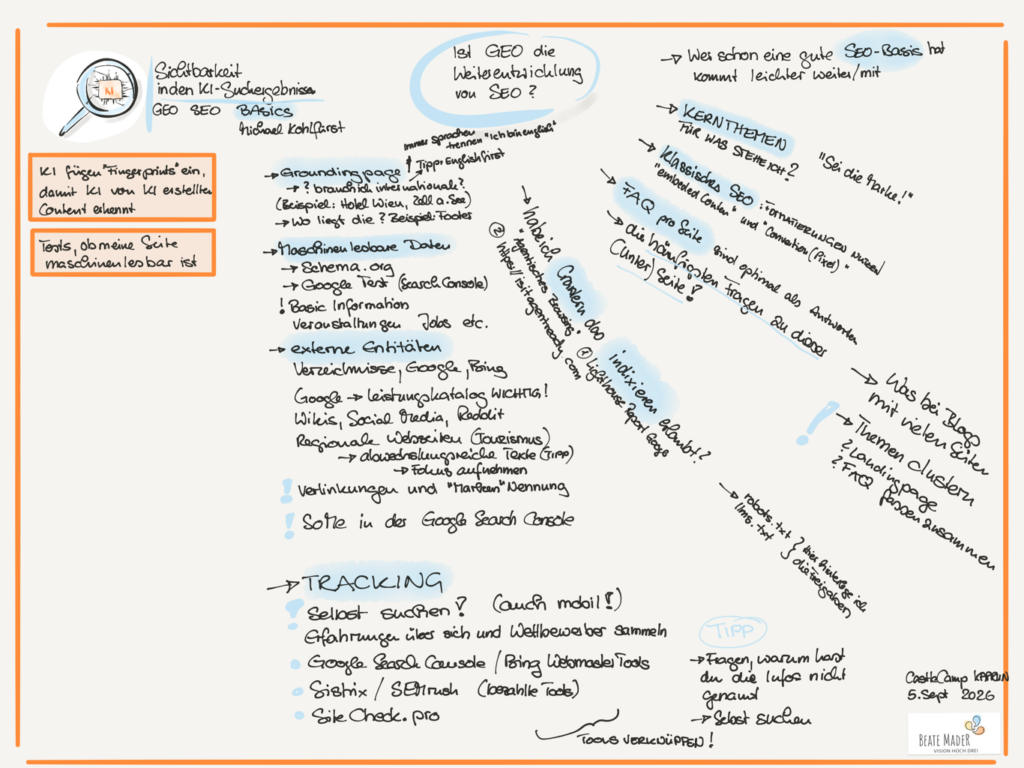 Sichtbarkeit
in den KI-Suchergebnisse
GEO SEO BASICS
Michael Kohlfürst
KI
KI fügen "Fingerprints" ein,
damit KI von KI erstellten
Content erkennt
Tests, ob meine Seite
maschinenlesbar ist
Ist GEO die
Weiterentwicklung
von SEO?
→ Wer schon eine gute SEO-Basis hat
kommt leichter weiter/mit
→ KERNTHEMEN
FÜR WAS STEHE ICH?
"Sei die Marke!"
→ klassisches SEO: Formatierungen nutzen
"embedded Content" und "Connection (Pixel)"
→ FAQ pro Seite sind optimal als Antworten
→ die häufigsten Fragen zu dieser
(Unter) Seite!
→ Was bei Blogs
mit vielen Seiten
→ Themen clustern
? Landingpage
? FAQ Passen zusammen
Immer Sprachen
trennen "Ich bin english"
! Tipp: English first
→ Groundingpage
→ ? brauch ich internationale?
(Beispiel: Hotel Wien, Zell a. See)
→ Wo liegt die? Beispiel: Footer
→ Maschinenlesbare Daten
→ Schema.org
→ Google Test (Search Console)
! Basic Information
Veranstaltungen Jobs etc.
→ externe Entitäten
Verzeichnisse, Google, Bing
Google → Leistungskatalog WICHTIG!
Wikis, Social Media, Reddit
Regionale Webseiten (Tourismus)
→ abwechslungsreiche Texte (TIPP)
→ Fokus aufnehmen
! Verlinkungen und "Marken" Nennung
! Sollte in der Google Search Console
→ hab ich Crawlern das indixieren erlaubt?
① Lighthouse Report Google
"Agentisches Browsing"
② https://isitagentready.com
→ robots.txt
llms.txt
} hier hinterlege ich
die Freigaben
→ TRACKING
! Selbst suchen! (auch mobil!)
Erfahrungen über sich und Wettbewerber sammeln
• Google Search Console / Bing Webmaster Tools
• Sistrix / SEMrush (bezahlte Tools)
• SiteCheck.pro
TOOLS VERKNÜPFEN!
TIPP
→ Fragen, warum hast
du die Infos nicht
genannt
→ Selbst suchen
CastleCamp KAPRUN
5. Sept 2026
BEATE MADER
VISION HOCH DREI